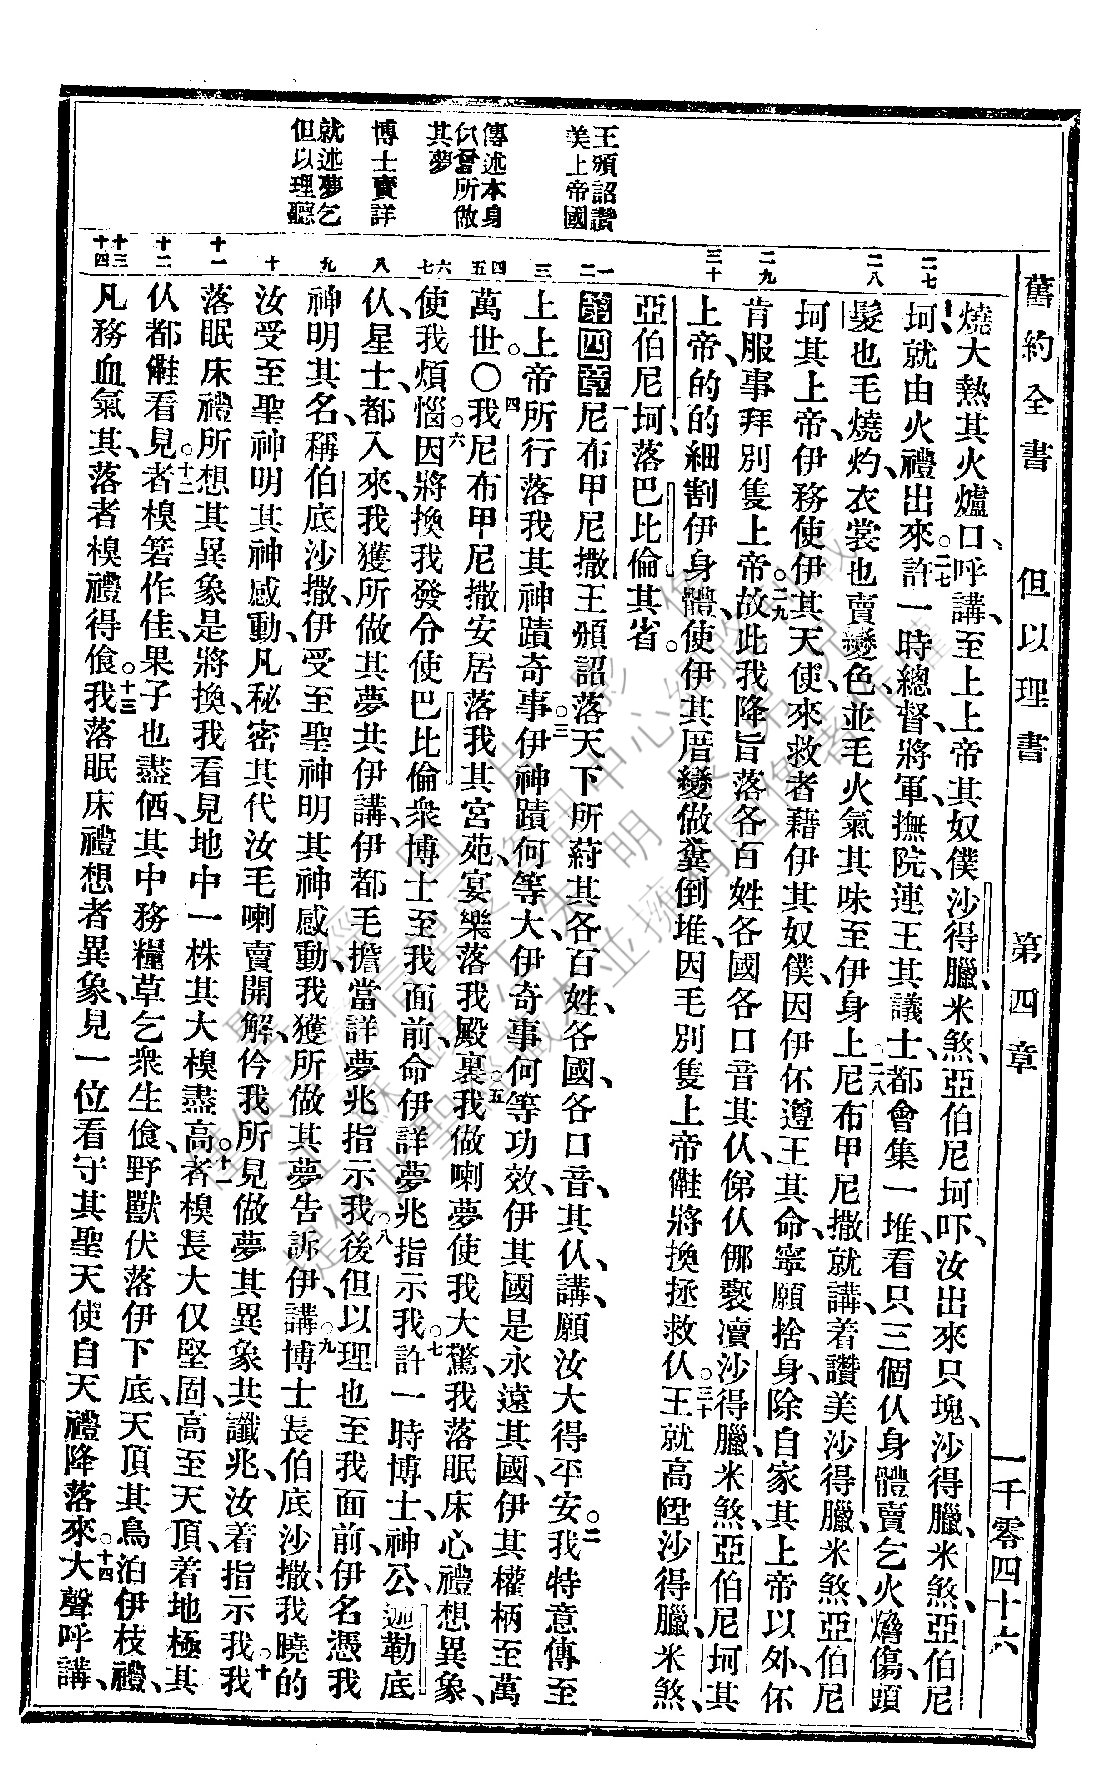 舊約全書 但以理書 第四章 一千零四十六
王頒詔讚
美上帝國
傳述本身
所做
其夢
博士賣詳
就述夢乞
但以理聽
二七
二八
二九
三十
一
二
三
四
五
六
七
八
九
十
十一
十二
十三
十四
燒大熱其火爐口、呼講、至上上帝其奴僕沙得臘米煞、亞伯尼坷吓、汝出來只塊、沙得臘、米煞、亞伯尼
坷就由火禮出來。二七許一時總督、將軍、撫院、連王其議士、都會集一堆、看只三個仈身體賣乞火燬傷、頭
髮也毛燒灼、衣裳也賣變色、並毛火氣其味至伊身上。二八尼布甲尼撒就講、着讚美沙得臘、米煞、亞伯尼
坷其上帝、伊務使伊其天使、來救者藉伊其奴僕、因伊伓遵王其命、寧願捨身、除自家其上帝以外、伓
肯服事拜別隻上帝。二九故此我降旨落各百姓各國各口音其仈、俤仈㑚褻瀆沙得臘、米煞、亞伯尼坷其
上帝、的的細割伊身體、使伊其厝變做糞倒堆、因毛別隻上帝㑉將換拯救仈。三十王就高陞沙得臘、米煞、
亞伯尼坷、落巴比倫其省。
第四章 一尼布甲尼撒王頒詔落天下所蒞其各百姓、各國、各口音其仈、講、願汝大得平安。二我特意傳至
上上帝所行落我其神蹟奇事。三伊神蹟何等大、伊奇事何等功效、伊其國是永遠其國、伊其權柄至萬
萬世。〇四我尼布甲尼撒安居落我其宮苑、宴樂落我殿裏。五我做喇夢使我大驚、我落眠床心禮想異象、
使我煩惱。六因將換我發令使巴比倫衆博士至我面前、命伊詳夢兆指示我。七許一時博士、神公、迦勒底
仈、星士、都入來、我獲所做其夢共伊講、伊都毛擔當詳夢兆指示我。八後但以理也至我面前、伊名憑我
神明其名、稱伯底沙撒、伊受至聖神明其神感動、我獲所做其夢告訴伊、講。九博士長伯底沙撒、我曉的
汝受至聖神明其神感動、凡秘密其代汝毛喇賣開解、仱我所見做夢其異象、共讖兆、汝着指示我。十我
落眠床禮所想其異象是將換、我看見地中一株其大槺盡高。十一者槺長大仅堅固、高至天頂、着地極其
仈都㑉看見。十二者槺箬作佳、果子也盡価、其中務糧草乞衆生飧、野獸伏落伊下底、天頂其鳥泊伊枝禮、
凡務血氣其、落者槺禮得飧。十三我落眠床禮想者異象、見一位看守其聖天使自天禮降落來。十四大聲呼講、